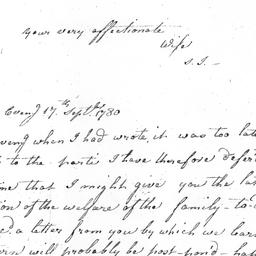 your very affectionate
Wife
S. J. —
Eveng 17th Septr. 1780
eveng when I had wrote it was too lat
to the parti I have therefore defer
me that I might give you the la
ion of the welfare of the family - to
ed. a letter from you by which we lear
urn will probably be post-pon'd - ha